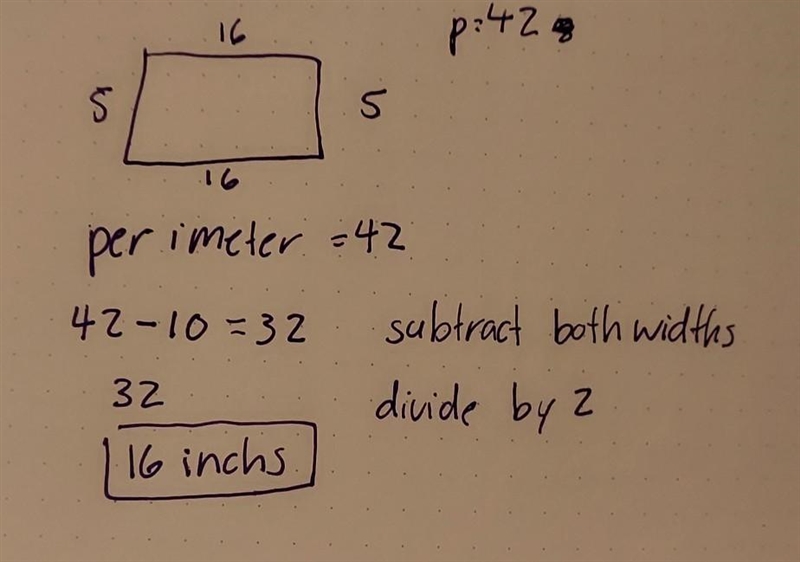 16
p=42
5
5
16
perimeter = 42
42 - 10 = 32 subtract both widths
32 divide by 2
16 inchs